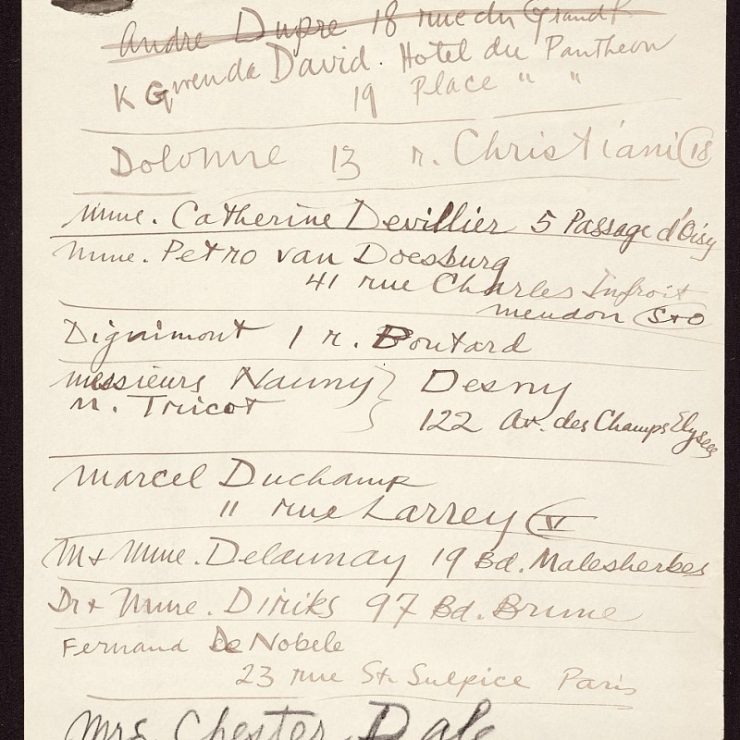 Andre Dupre 18 rue du Grand
K Gwenda David. Hotel du Pantheon
19 Place " "
Dolonne 13 r. Christiani (18
Mme. Catherine Devillier 5 Passage d'Oisy
Mme. Petro van Doesburg
41 rue Charles Infroit
Meudon S+O
Dignimont 1 r. Boutard
Messieurs Nauny } Desny
M. Tricot } 122 Av. des Champs Elysees
Marcel Duchamp
11 rue Larrey (V
M + Mme. Delaunay 19 Bd. Malesherbes
Dr + Mme. Diriks 97 Bd. Brune
Fernand De Nobele
23 rue St. Sulpice Paris
Mrs Chester Dale